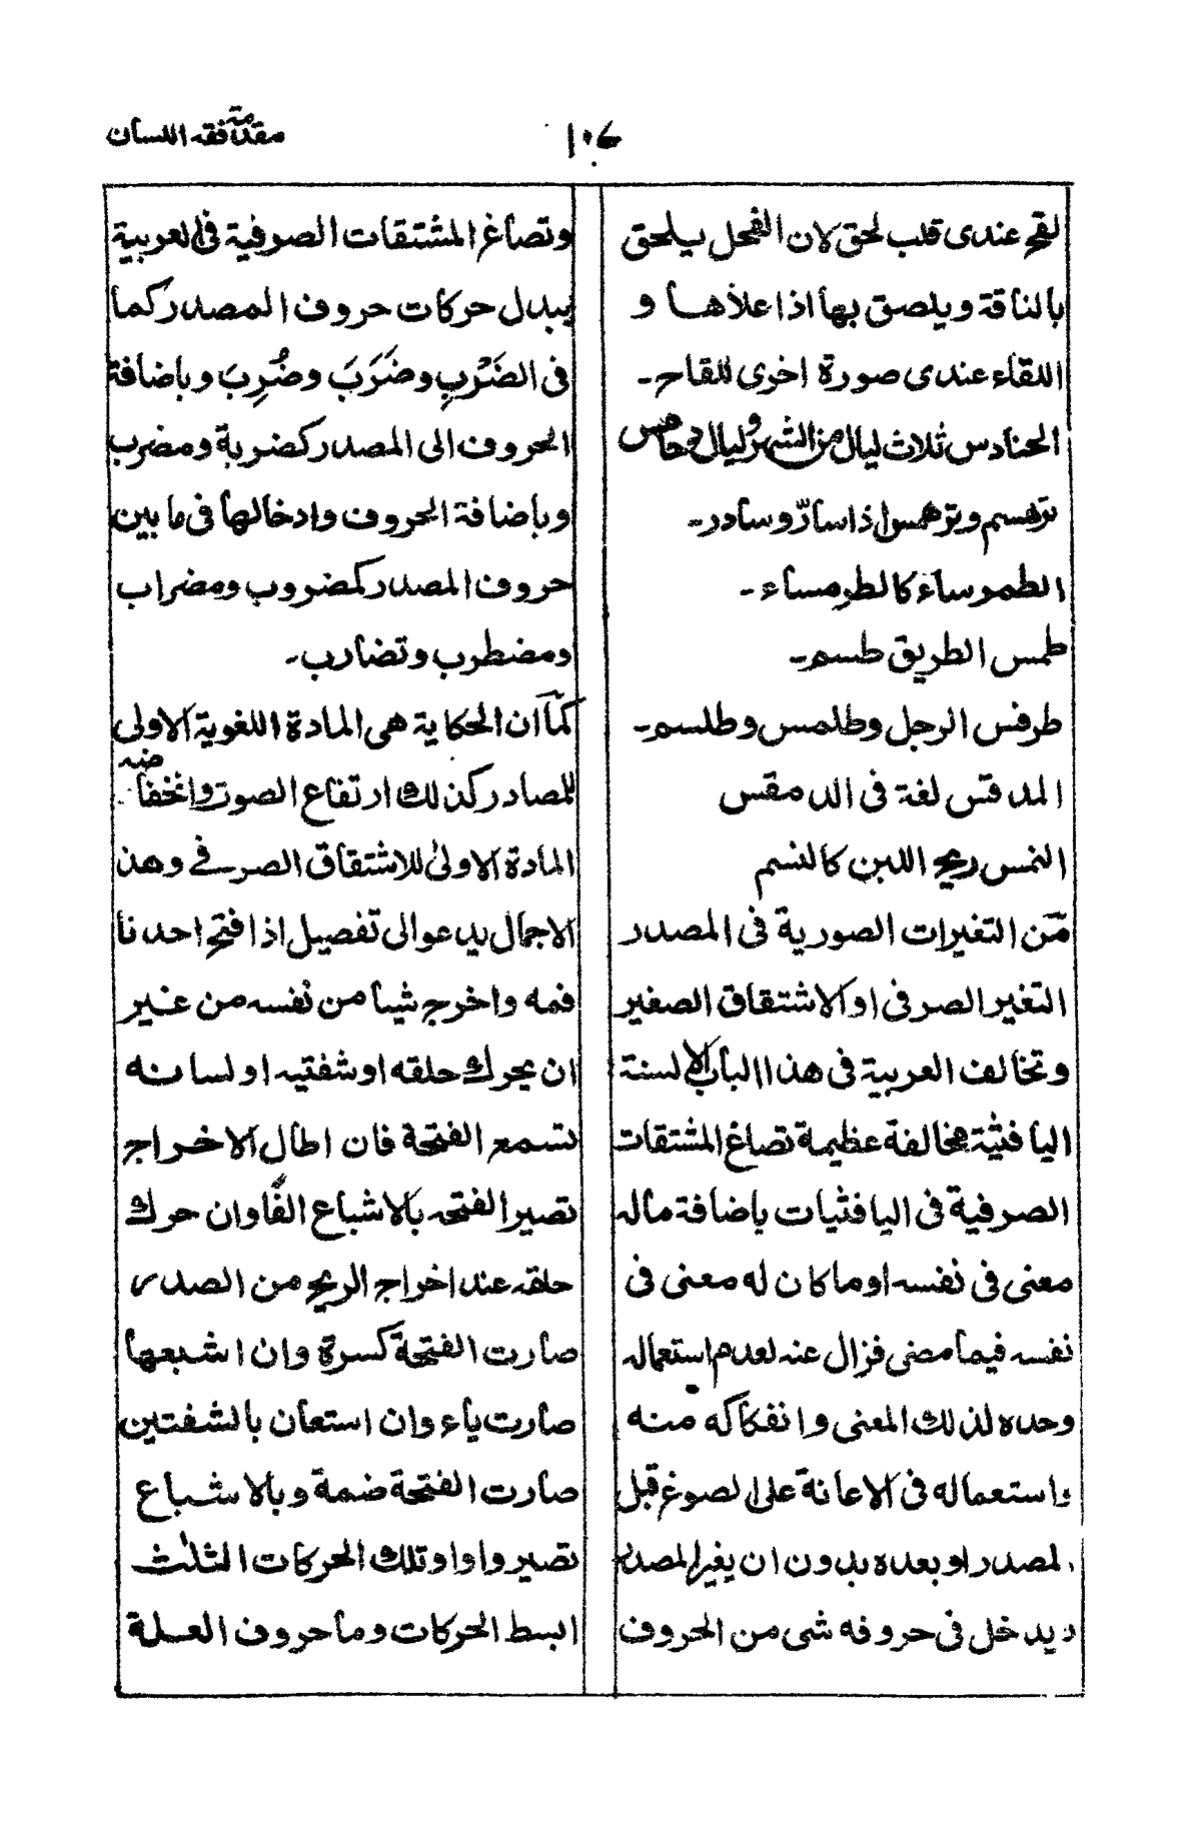 مقدمة فقه اللسان
١٠٤
لقح عندى قلب لحق لان الفحل يلحق
بالناقة ويلصق بها اذا علاها و
اللقاء عندى صورة اخرى للقاح۔
الحنادس ثلاث ليال من الشهر وليال دحامس
ترهسم وترهمس اذا سارّ وسادر۔
الطموساء كالطرمساء۔
طمس الطريق طسم۔
طرفس الرجل وطلمس وطلسم۔
المدقس لغة فى الدمقس
النمس ريح اللبن كالنسم
من التغيرات الصورية فى المصدر
التغير الصرفى او الاشتقاق الصغير
وتخالف العربية فى هذا الباب الالسنة
اليافثية مخالفة عظيمة تصاغ المشتقات
الصرفية فى اليافثيات باضافة ماله
معنى فى نفسه او ما كان له معنى فى
نفسه فيما مضى فزال عنه لعدم استعماله
وحده لذلك المعنى وانفكاكه منه
واستعماله فى الاعانة على الصوغ قبل
لمصدر او بعده بدون ان يغير المصدر
ويدخل فى حروفه شى من الحروف
وتصاغ المشتقات الصرفية فى العربية
يبدل حركات حروف المصدر كما
فى الضَرْبِ وضَرَبَ وضُرِبَ وباضافة
الحروف الى المصدر كضربة ومضرب
وباضافة الحروف وادخالها فى ما بين
حروف المصدر كمضروب ومضراب
ومضطرب وتضارب۔
كما ان الحكاية هى المادة اللغوية الاولى
للمصادر كذلك ارتفاع الصوت وانخفاضه
المادة الاولىٰ للاشتقاق الصرفے وهذ
الاجمال يدعو الى تفصيل اذا فتح احدنا
فمه واخرج شيا من نفسه من غير
ان يحرك حلقه او شفتيه او لسانه
تسمع الفتحة فان اطال الاخراج
تصير الفتحه بالاشباع الفًا وان حرك
حلقه عند اخراج الريح من الصدر
صارت الفتحة كسرة وان اشبعها
صارت ياء وان استعان بالشفتين
صارت الفتحة ضمة وبالاشباع
تصير واوا وتلك الحركات الثلٰث
ابسط الحركات وما حروف العلة